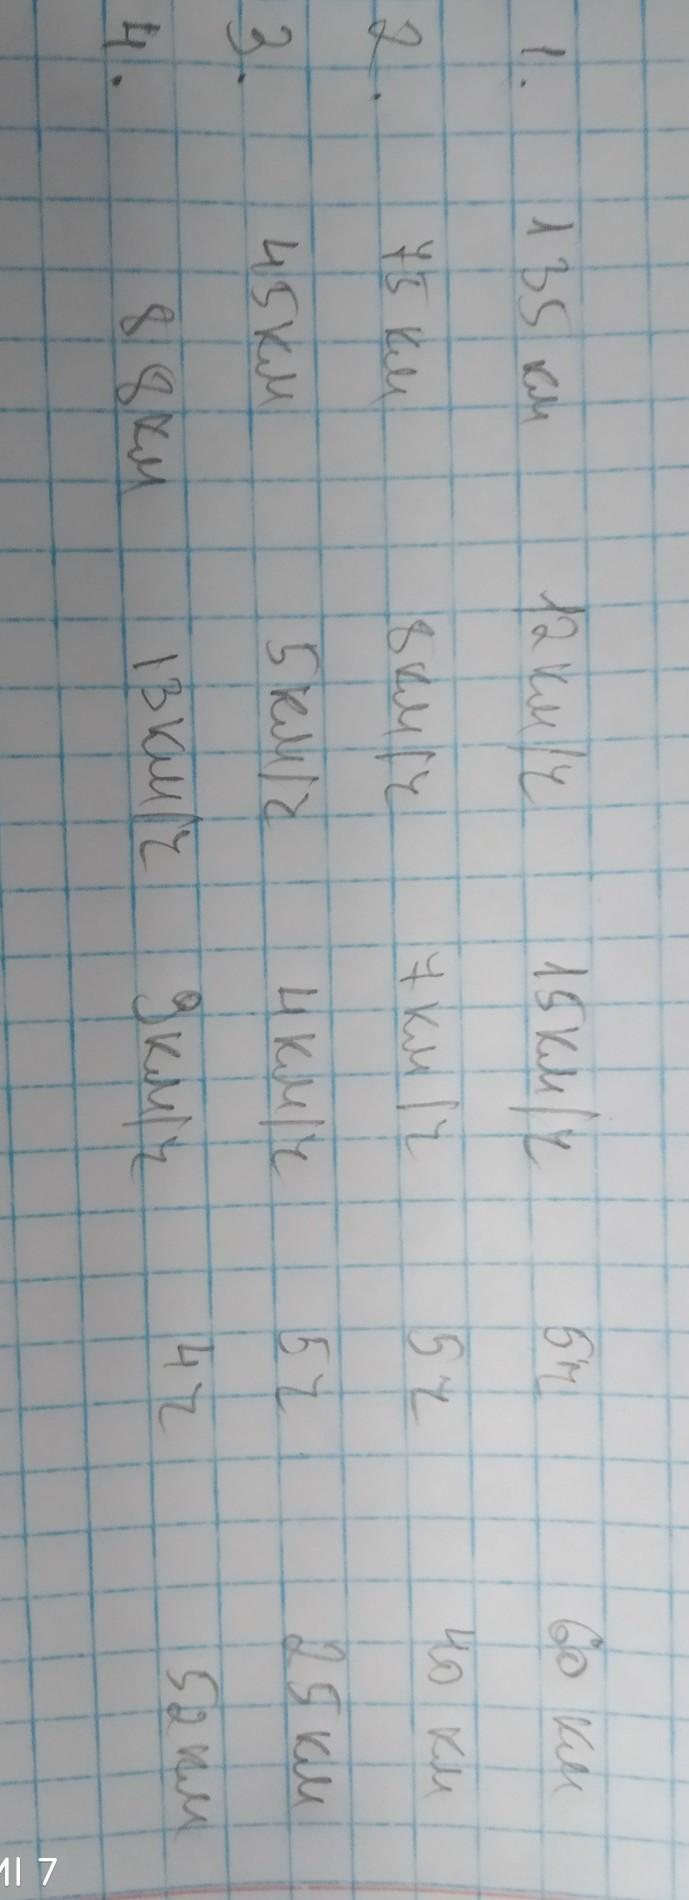 1. 135 км 12 км/ч 15 км/ч 5ч 60 км
2. 75 км 8 км/ч 7 км/ч 5ч 40 км
3. 45 км 5 км/ч 4 км/ч 5ч 25 км
4. 88 км 13 км/ч 9 км/ч 4ч 52 км
MI 7